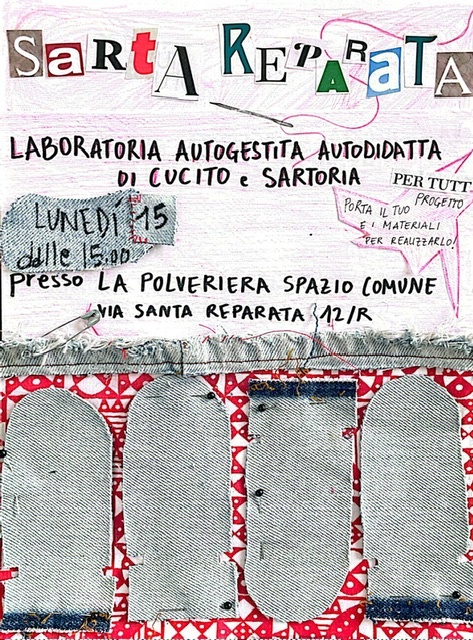 SaRtA REPARATA
LABORATORIA AUTOGESTITA AUTODIDATTA
DI CUCITO e SARTORIA
PER TUTT
PORTA IL TUO PROGETTO
E I MATERIALI
PER REALIZZARLO!
LUNEDÍ 15
dalle 15.00
presso LA POLVERIERA SPAZIO COMUNE
VIA SANTA REPARATA 12/R